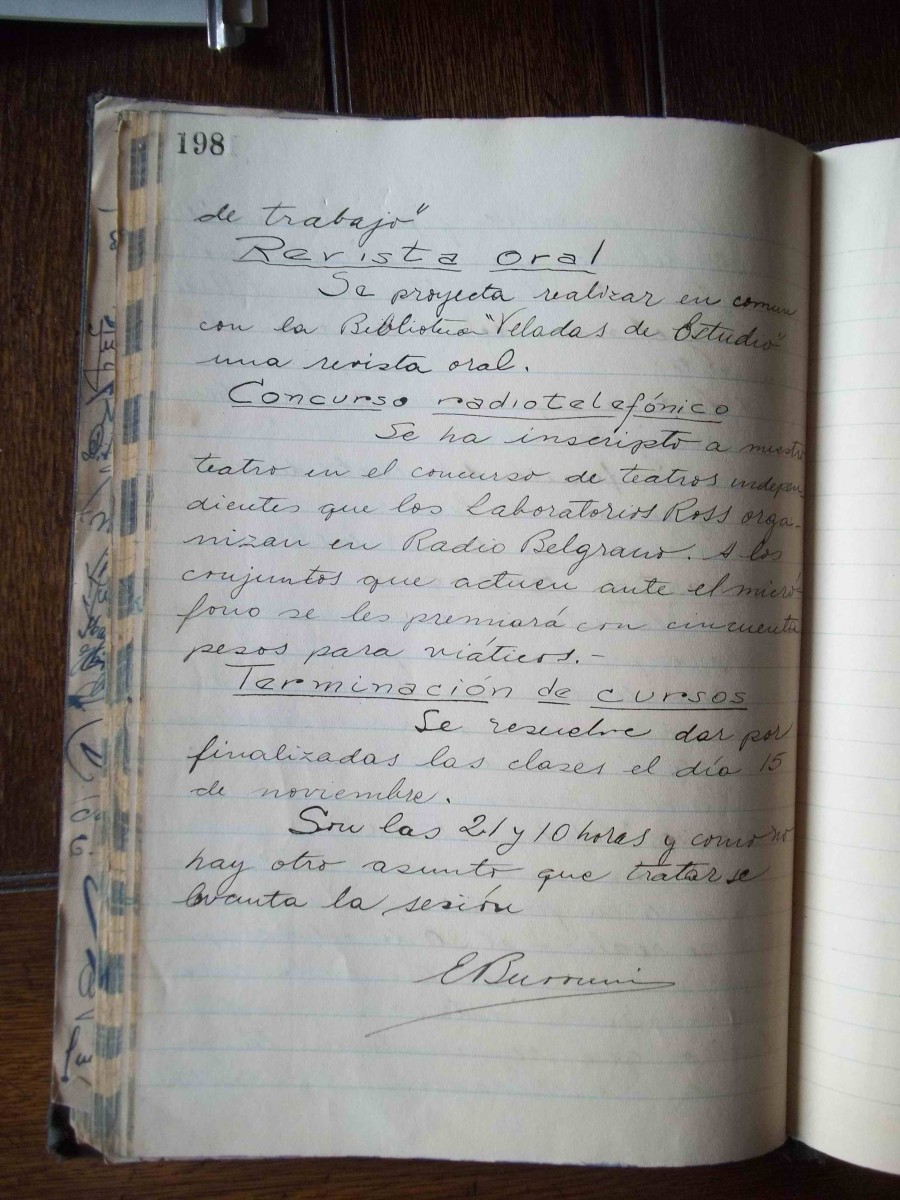 198
de trabajo"
Revista oral
Se proyecta realizar en comun
con la Biblioteca "Veladas de Estudio"
una revista oral.
Concurso radiotelefónico
Se ha inscripto a nuestro
teatro en el concurso de teatros indepen-
dientes que los Laboratorios Ross orga-
nizan en Radio Belgrano. A los
conjuntos que actuen ante el micró-
fono se les premiará con cincuenta
pesos para viáticos.-
Terminación de cursos
Se resuelve dar por
finalizadas las clases el día 15
de noviembre.
Son las 21 y 10 horas y como no
hay otro asunto que tratar se
levanta la sesión